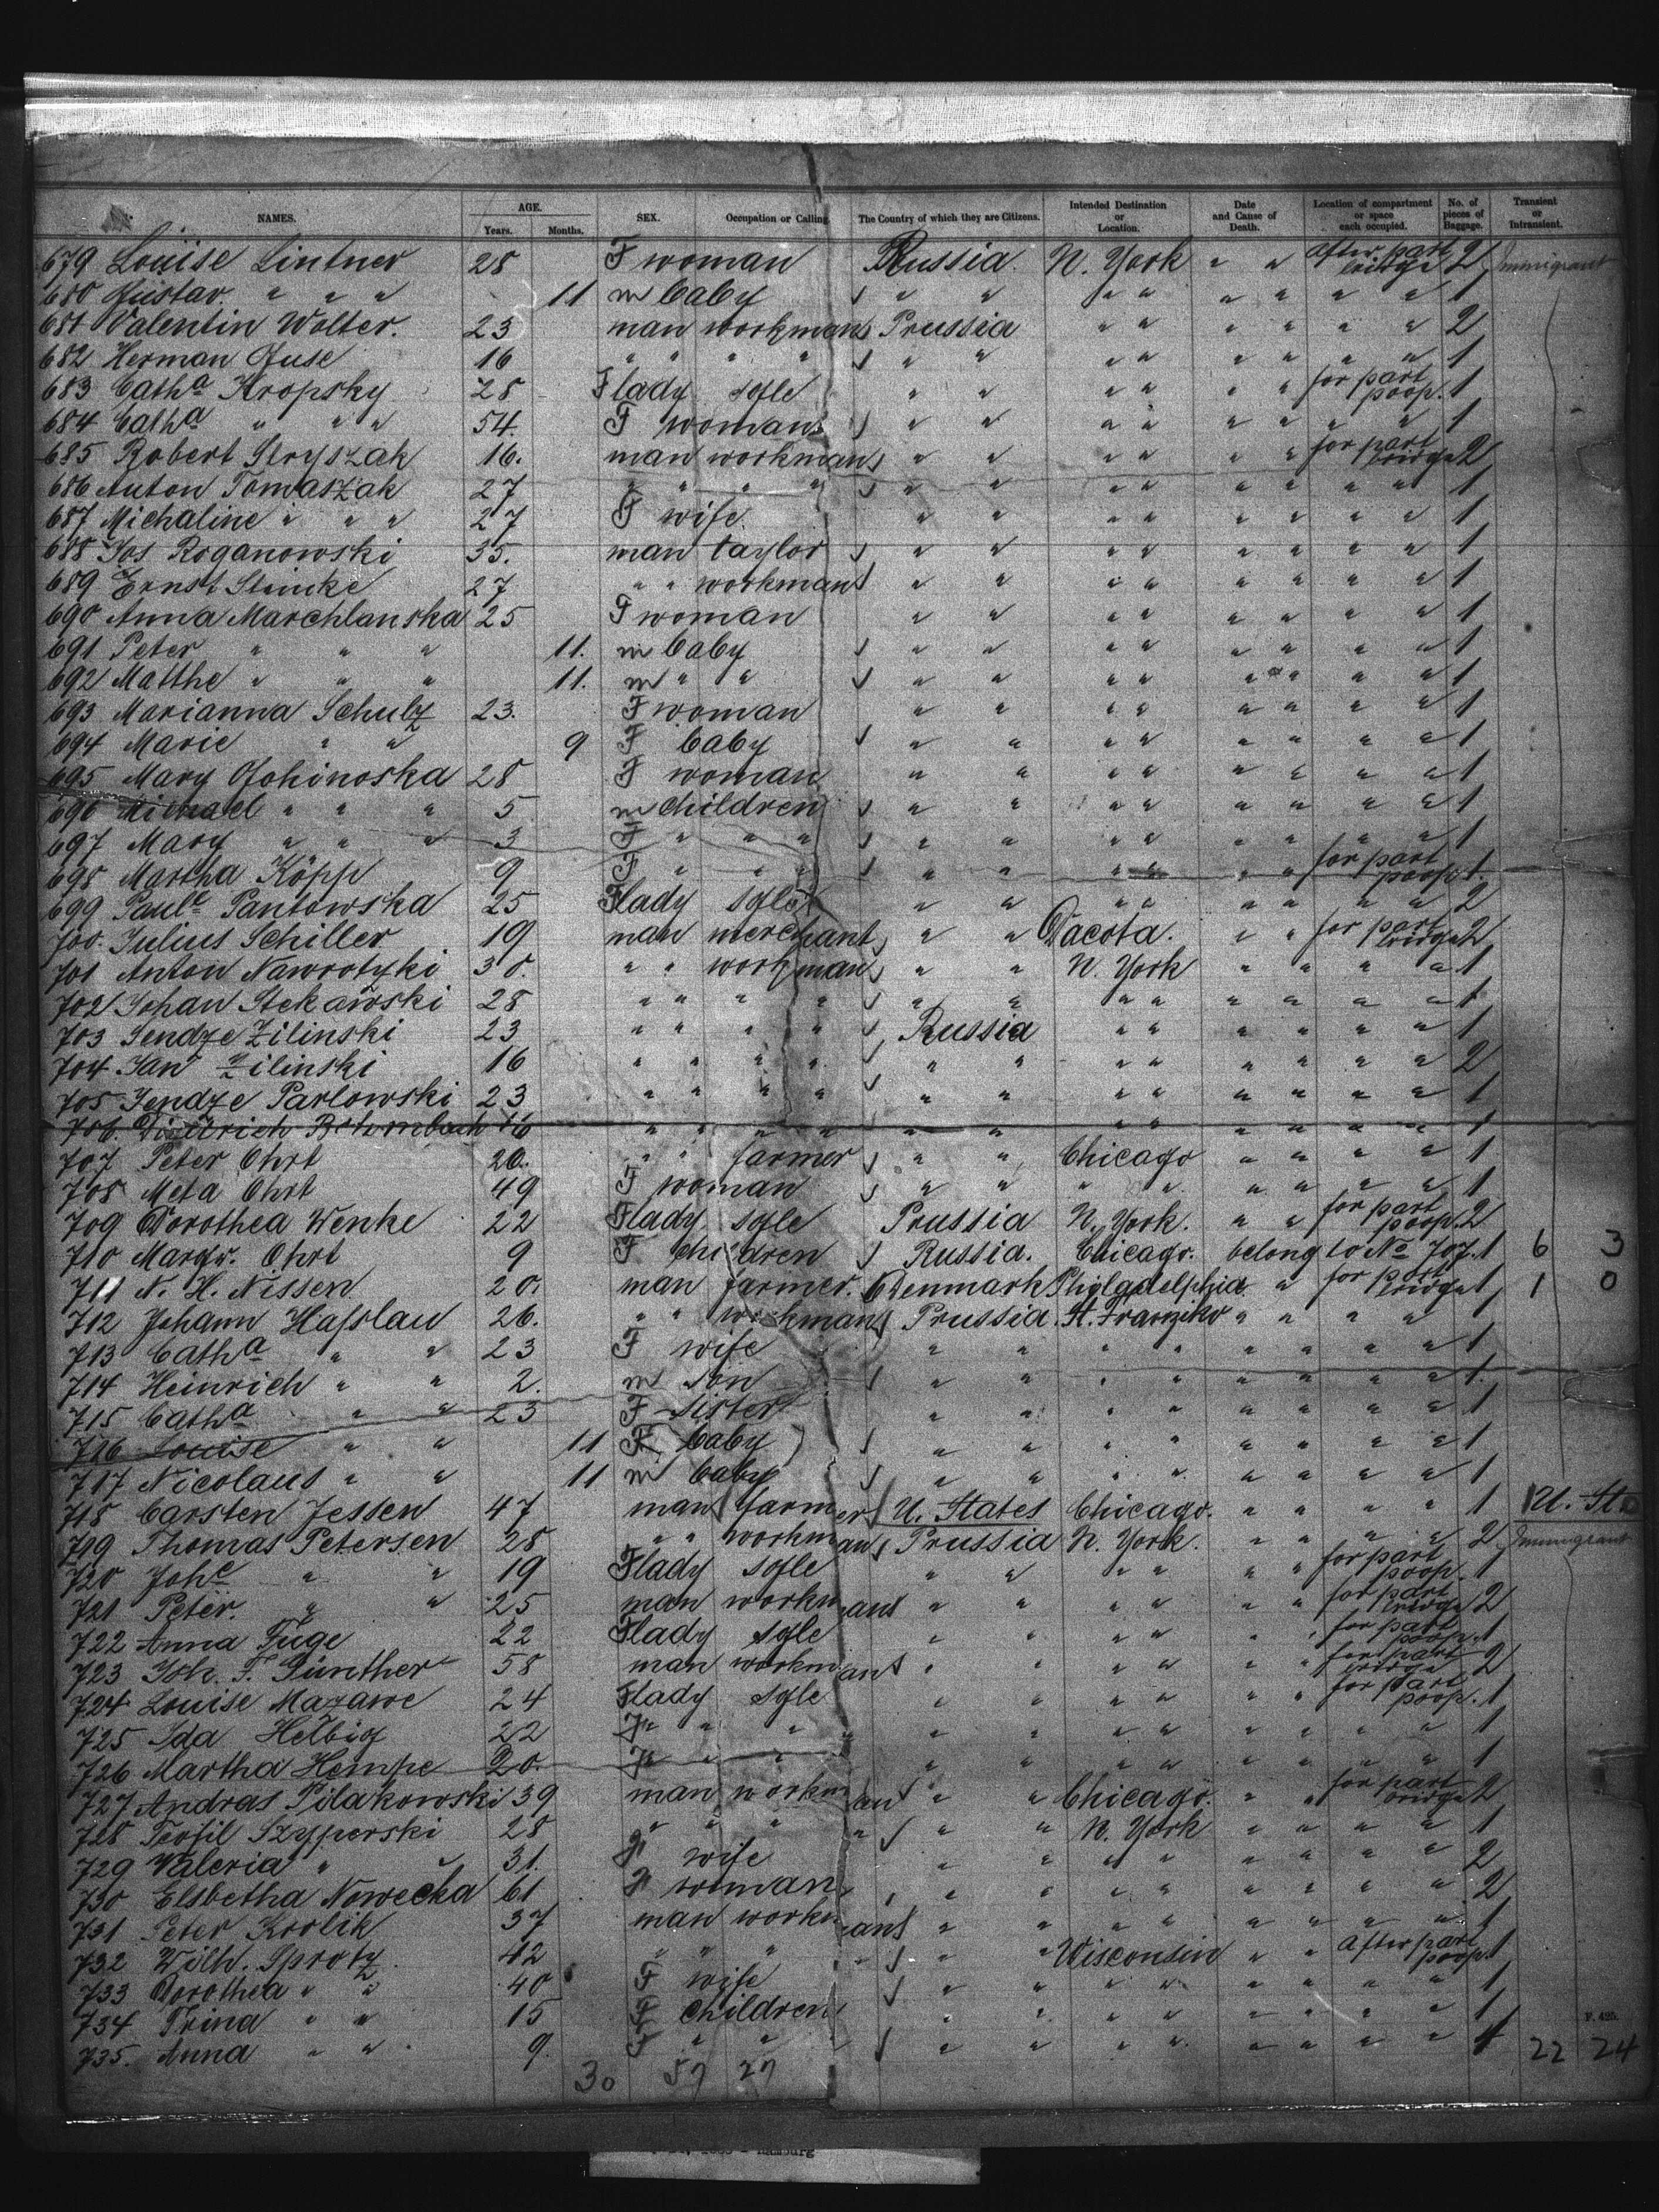 NAMES. AGE. Years. Months. SEX. Occupation or Calling The Country of which they are Citizens. Intended Destination or Location. Date and Cause of Death. Location of compartment or space each occupied. No. of pieces of Baggage. Transient or Intransient.
679 Louise Lintner 28 F woman Russia. N. York " " After part bridge 2 Immigrant
680 Gustav. " " " 11 m baby " " " " " " " " 1
681 Valentin Wolter. 23 man workman Prussia " " " " " " 2
682 Herman Fuse 16 " " " " " " " " " " " " 1
683 Catha Kropsky 28 F lady sgle " " " " " " for part poop. 1
684 Catha " " " 54. F woman " " " " " " " " 1
685 Robert Stryszak 16. man workman " " " " " " for part bridge 2
686 Anton Tomaszak 27 " " " " " " " " " " " " 1
687 Michaline " " " 27 F wife. " " " " " " " " 1
688 Jos Roganowski 35. man taylor " " " " " " " " 1
689 Ernst Steincke 27 " " workman " " " " " " " " 1
690 Anna Marchlanska 25 F woman " " " " " " " " 1
691 Peter " " " 11. m baby " " " " " " " " 1
692 Matthe " " " 11. m " " " " " " " " " " 1
693 Marianna Schulz 23. F woman " " " " " " " " 1
694 Marie " " 9 F baby " " " " " " " " 1
695 Mary Gohinoska 28 F woman " " " " " " " " 1
696 Michael " " " 5 m children " " " " " " " " 1
697 Mary " " " 3 F " " " " " " " " " " " 1
698 Martha Köpp 9 F " " " " " " " " " for part poop 1.
699 Paule Pantowska 25 F lady sgle " " " " " " " " 2
700. Julius Schiller 19 man merchant " " Dacota. " " for part bridge 2
701 Anton Nawrotyki 30. " " workman " " N. York " " " " 1
702 Johan Stekawski 28 " " " " " " " " " " " " 1
703 Sendze Zilinski 23 " " " " Russia " " " " " " 1
704 Jan Zilinski 16 " " " " " " " " " " " " 2
705 Jendze Parlowski 23 " " " " " " " " " " " " 1
706. Diedrich Rohmbach 16 " " " " " " " " " " " " 1
707 Peter Ohrt 20. " " farmer " " Chicago " " " " 1
708 Meta Ohrt 49 F woman " " " " " " " " 1
709 Dorothea Wenke 22 F lady sgle Prussia N. York. " " for part poop. 2
710 Margr. Ohrt 9 F children Russia. Chicago. belong to No 707. 1 6 3
711 N. H. Nissen 20. man farmer. Denmark Philadelphia. " for part bridge 1 1 0
712 Johann Hasslau 26. " " workman Prussia. St. Franzisko " " " "
713 Catha " " 23 F wife " " " " " " " " 1
714 Heinrich " " 2. m son " " " " " " " " 1.
715 Catha " " 23 F sister " " " " " " " " 1
716 Louise " " 11 F baby " " " " " " " " 1
717 Nicolaus " " 11 m baby " " " " " " " " 1
718 Carsten Jessen 47 man farmer U. States Chicago. " " " " 1 U. Sta
719 Thomas Petersen 28 " " workman Prussia N. York. " " " " 2 Immigrant
720 Johe " " 19 F lady sgle " " " " " " for part poop. 1
721 Peter. " " 25 man workman " " " " " " for part bridge 2
722 Anna Fuge 22 F lady sgle " " " " " " for part poop. 1
723 Joh. F. Günther 58 man workman " " " " " " for part bridge 2
724 Louise Mazawe 24 F lady sgle " " " " " " for part poop. 1
725 Ida Helbig 22 F " " " " " " " " " " " 1
726 Martha Hempe 20. F " " " " " " " " " " 1
727 Andras Pilakowski 39 man workman " " Chicago. " " for part bridge 2
728 Teofil Szyperski 28 " " " " " " N. York " " " " 1
729 Valeria " " 31. F wife " " " " " " " " 2
730 Elsbetha Nowecka 61 F woman " " " " " " " " 2
731 Peter Krolik 37 man workman " " " " " " " " 1
732 Wilh. Sprotz. 42 " " " " " " Wisconsin " " After part poop 1
733 Dorothea " " 40 F wife " " " " " " " " 1
734 Trina " " 15 F children " " " " " " " " 1
735. Anna " " 9. F " " " " " " " " " " 1 22 24
30 57 27
F. 425.